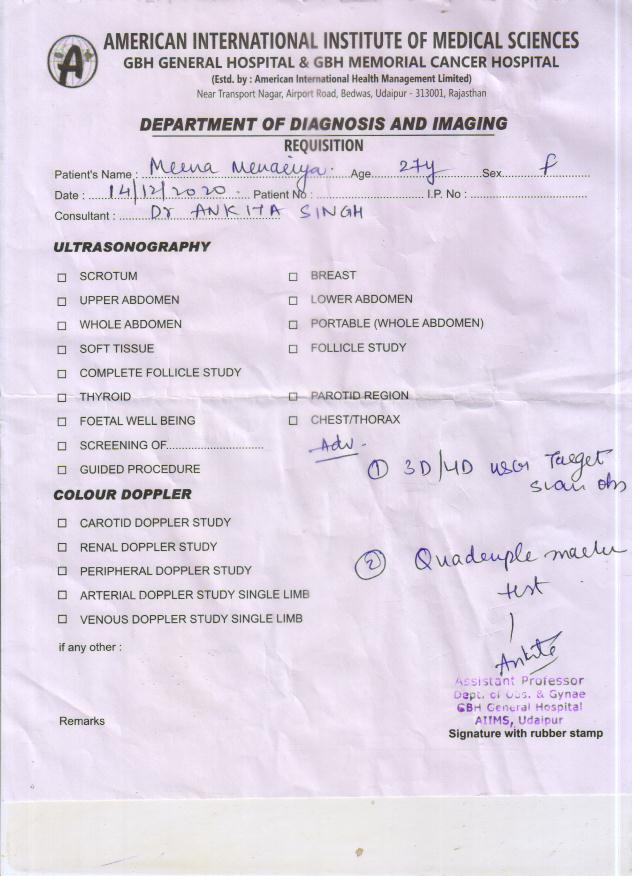 A
AMERICAN INTERNATIONAL INSTITUTE OF MEDICAL SCIENCES
GBH GENERAL HOSPITAL & GBH MEMORIAL CANCER HOSPITAL
(Estd. by : American International Health Management Limited)
Near Transport Nagar, Airport Road, Bedwas, Udaipur - 313001, Rajasthan
DEPARTMENT OF DIAGNOSIS AND IMAGING
REQUISITION
Patient's Name : Meena Menariya. Age 27y Sex f
Date : 14/12/2020. Patient No : I.P. No :
Consultant : Dr ANKITA SINGH
ULTRASONOGRAPHY
☐ SCROTUM ☐ BREAST
☐ UPPER ABDOMEN ☐ LOWER ABDOMEN
☐ WHOLE ABDOMEN ☐ PORTABLE (WHOLE ABDOMEN)
☐ SOFT TISSUE ☐ FOLLICLE STUDY
☐ COMPLETE FOLLICLE STUDY
☐ THYROID ☐ PAROTID REGION
☐ FOETAL WELL BEING ☐ CHEST/THORAX
☐ SCREENING OF........................... Adv.
① 3D/4D USG Target
☐ GUIDED PROCEDURE
scan obs
COLOUR DOPPLER
☐ CAROTID DOPPLER STUDY
☐ RENAL DOPPLER STUDY
② Quadruple marker
☐ PERIPHERAL DOPPLER STUDY
test
☐ ARTERIAL DOPPLER STUDY SINGLE LIMB
☐ VENOUS DOPPLER STUDY SINGLE LIMB
if any other :
Ankita
Assistant Professor
Dept. of Obs. & Gynae
GBH General Hospital
AIIMS, Udaipur
Remarks
Signature with rubber stamp